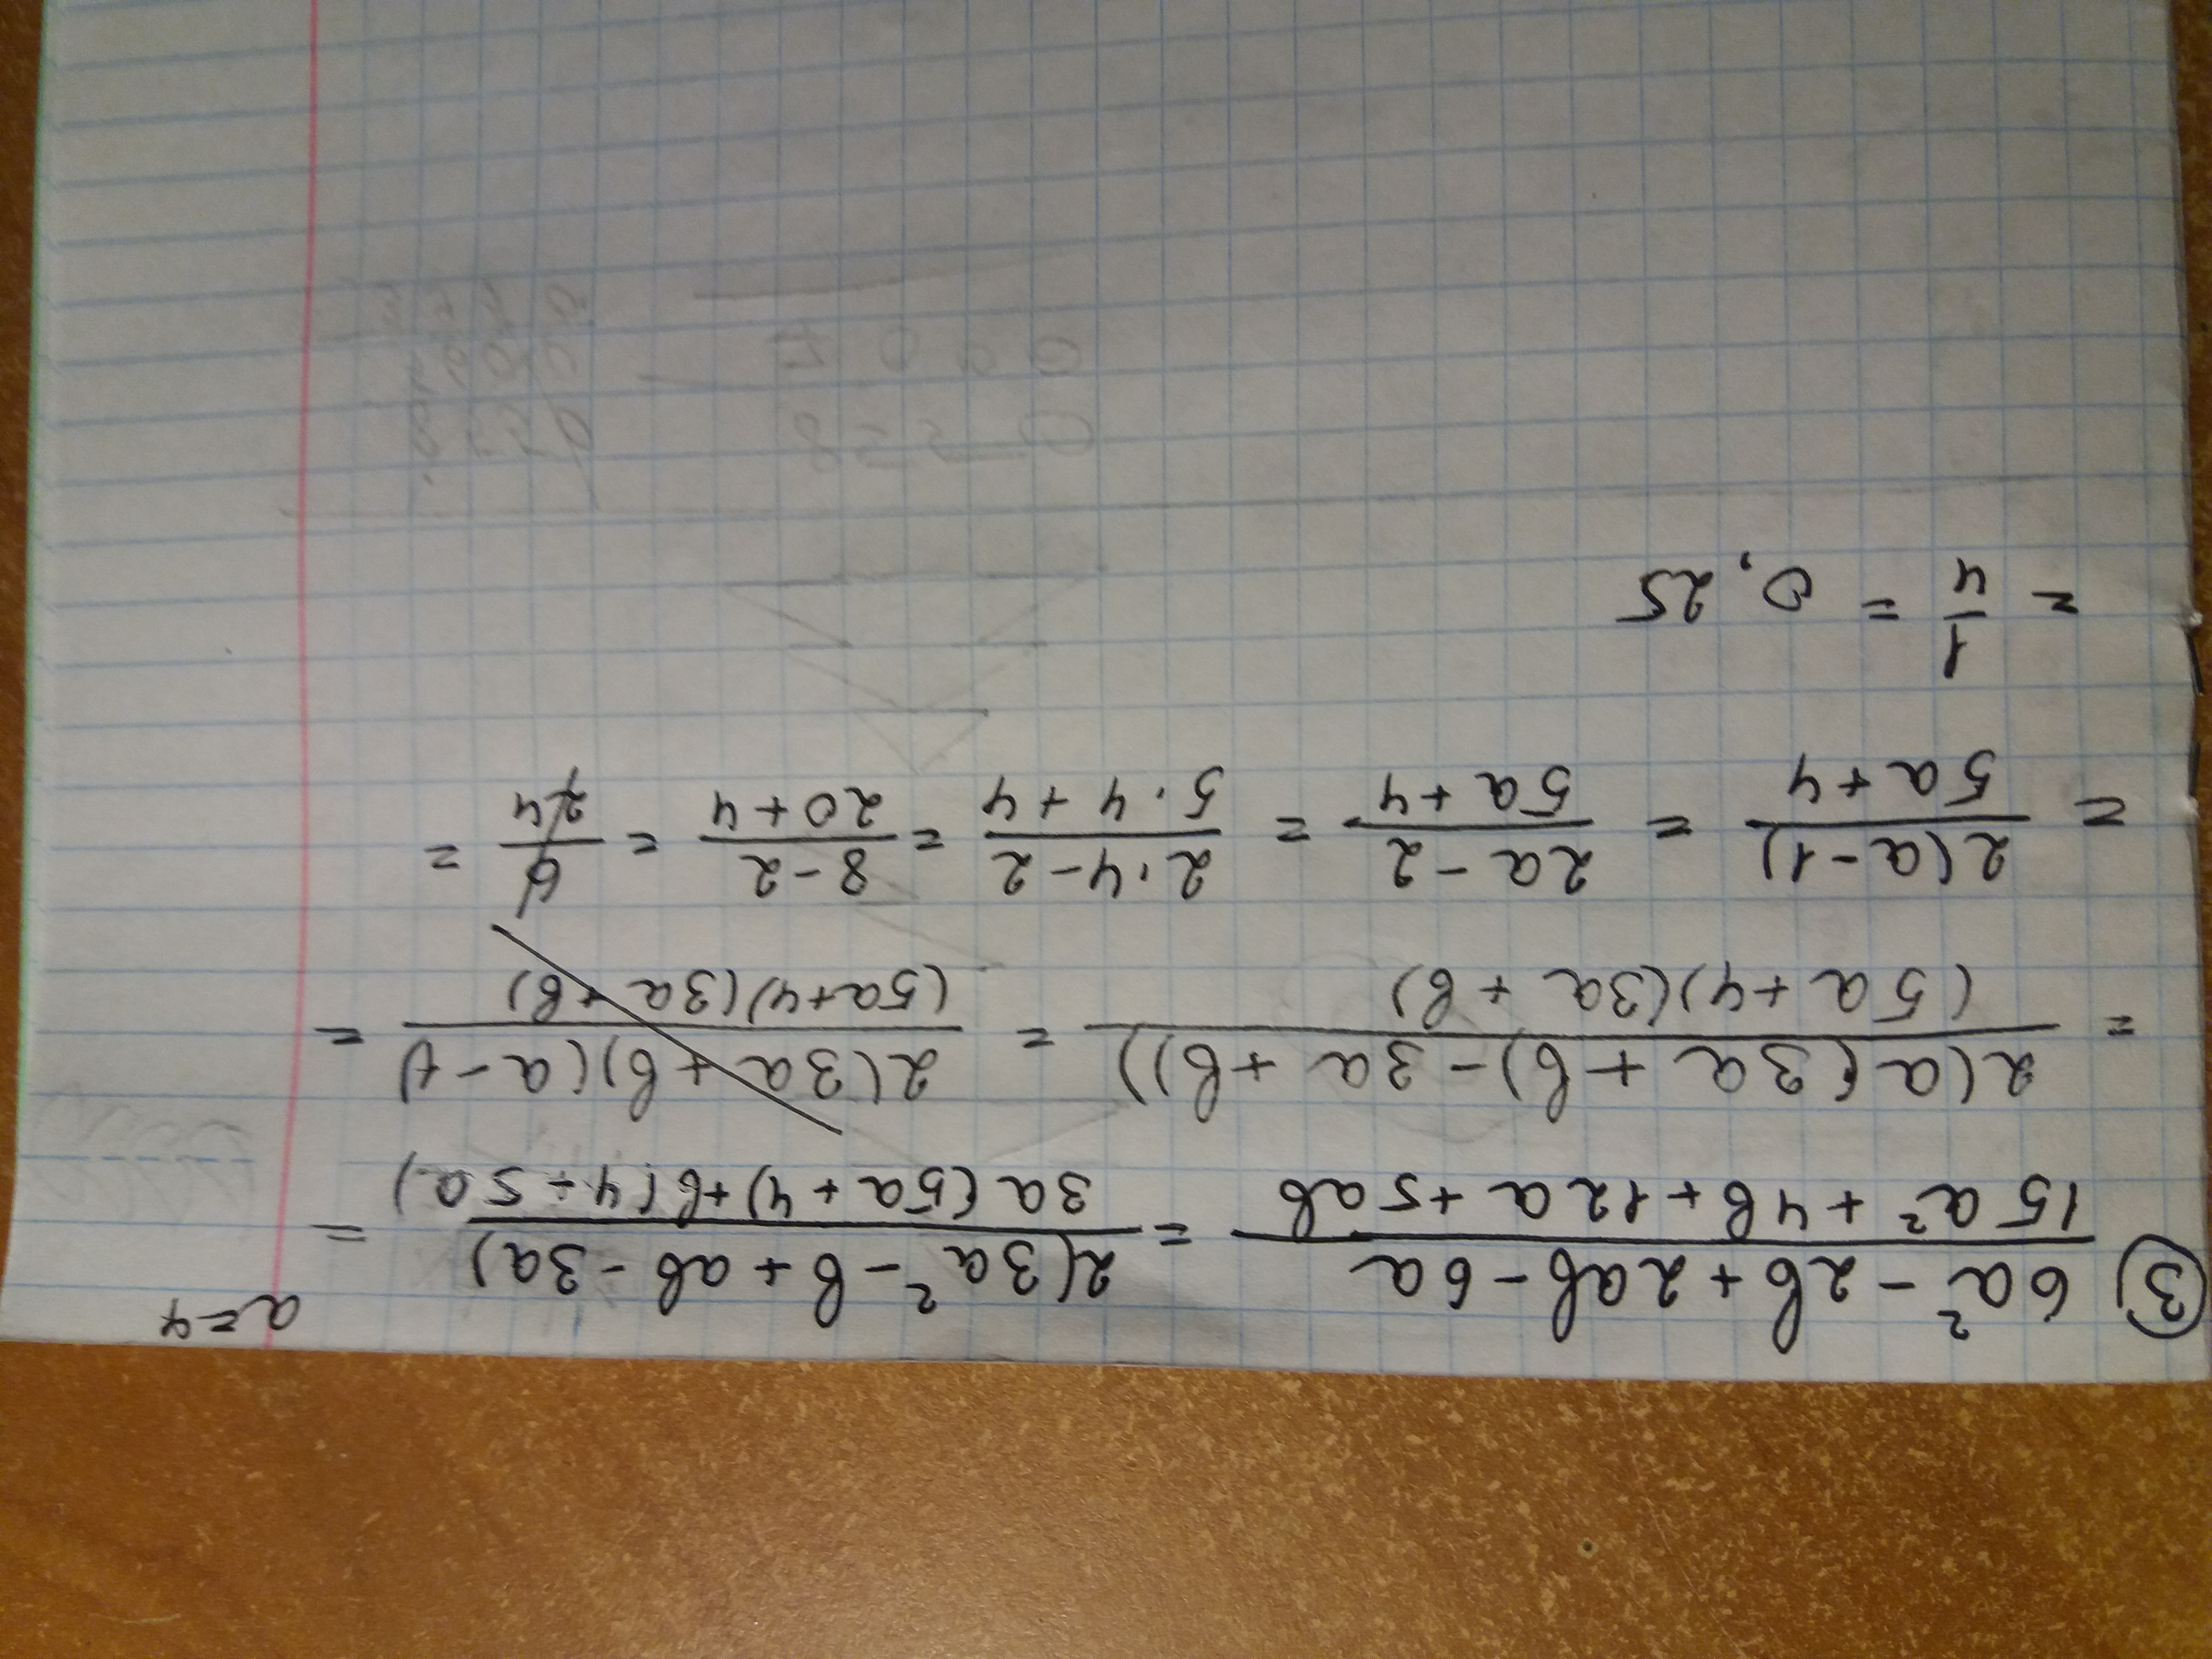 a=4
③ (6a² - 2b + 2ab - 6a)/(15a² + 4b + 12a + 5ab) = 2(3a² - b + ab - 3a)/(3a(5a + 4) + b(4 + 5a)) =
= 2(a(3a + b) - 3a + b))/((5a + 4)(3a + b)) = 2(3a + b)(a - 1)/((5a+4)(3a + b)) =
= 2(a - 1)/(5a + 4) = (2a - 2)/(5a + 4) = (2·4 - 2)/(5·4 + 4) = (8 - 2)/(20 + 4) = 6/24 =
= 1/4 = 0,25